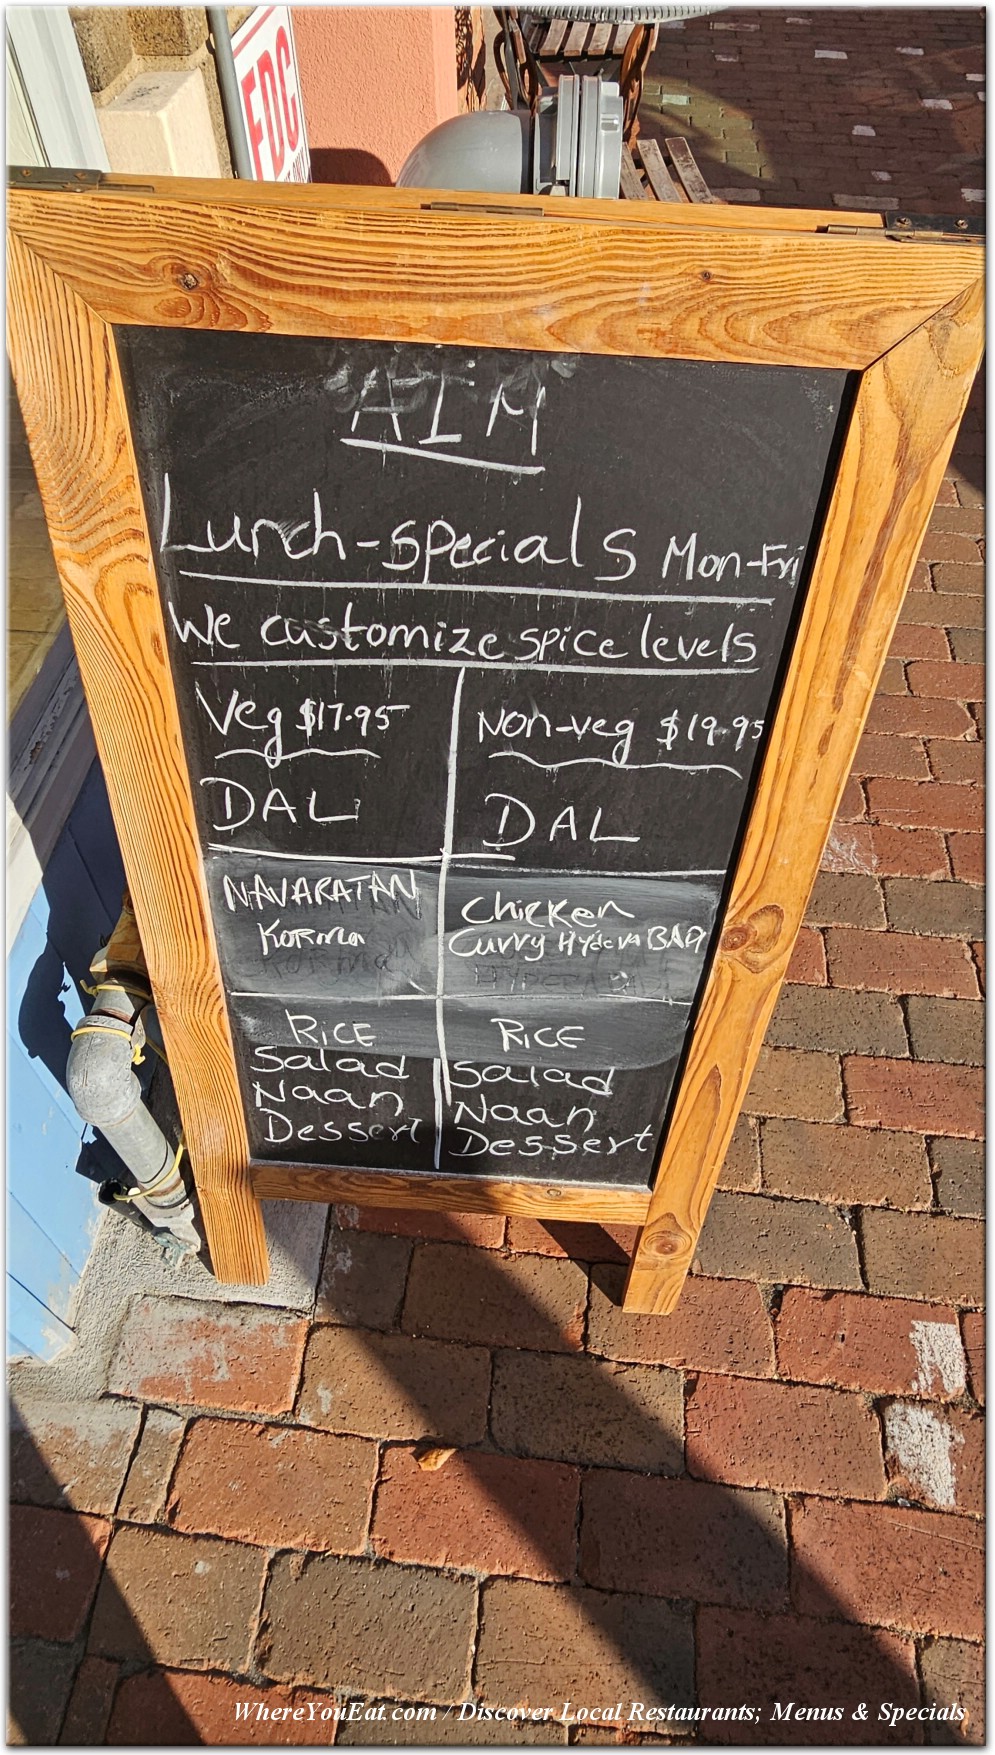 FDC
ATM
Lunch-specialS Mon-Fri
We customize spice levels
Veg $17.95
DAL
NAVARATAN
KORMA
RICE
Salad
Naan
Dessert
Non-veg $19.95
DAL
Chicken
Curry HyderaBADI
RICE
Salad
Naan
Dessert
WhereYouEat.com / Discover Local Restaurants; Menus & Specials